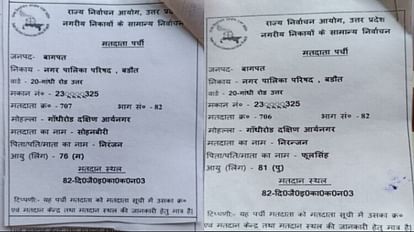 राज्य निर्वाचन आयोग, उत्तर प्रदेश
नगरीय निकायों के सामान्य निर्वाचन
मतदाता पर्ची
जनपद- बागपत
निकाय - नगर पालिका परिषद , बडौत
वार्ड - 20-गांधी रोड उत्तर
मकान नं० - 23 325
मतदाता क्र० - 707 भाग सं० - 82
मोहल्ला - गाँधीरोड दक्षिण आर्यनगर
मतदाता का नाम - सोहनबीरी
पिता/पति/माता का नाम - निरंजन
आयु (लिंग) - 76 (म)
मतदान स्थल
82-दि0जै0इ0का0क0न03
टिप्पणी:- यह पर्ची मतदाता को मतदाता सूची में उसका क्र०
एवं मतदान केन्द्र तथा मतदान स्थल की जानकारी हेतु मात्र है।
राज्य निर्वाचन आयोग, उत्तर प्रदेश
नगरीय निकायों के सामान्य निर्वाचन
मतदाता पर्ची
जनपद- बागपत
निकाय - नगर पालिका परिषद , बडौत
वार्ड - 20-गांधी रोड उत्तर
मकान नं० - 23 325
मतदाता क्र० - 706 भाग सं० - 82
मोहल्ला - गाँधीरोड दक्षिण आर्यनगर
मतदाता का नाम - निरन्जन
पिता/पति/माता का नाम - फूलसिंह
आयु (लिंग) - 81 (पु)
मतदान स्थल
82-दि0जै0इ0का0क0न03
टिप्पणी:- यह पर्ची मतदाता को मतदाता सूची में उसका क्र०
एवं मतदान केन्द्र तथा मतदान स्थल की जानकारी हेतु मात्र है।